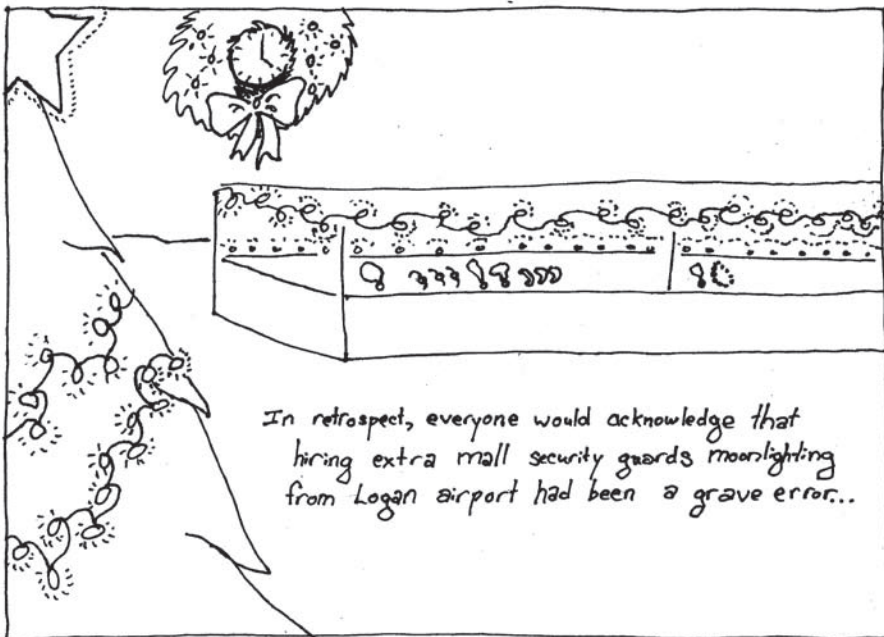 In retrospect, everyone would acknowledge that
hiring extra mall security guards moonlighting
from Logan airport had been a grave error...